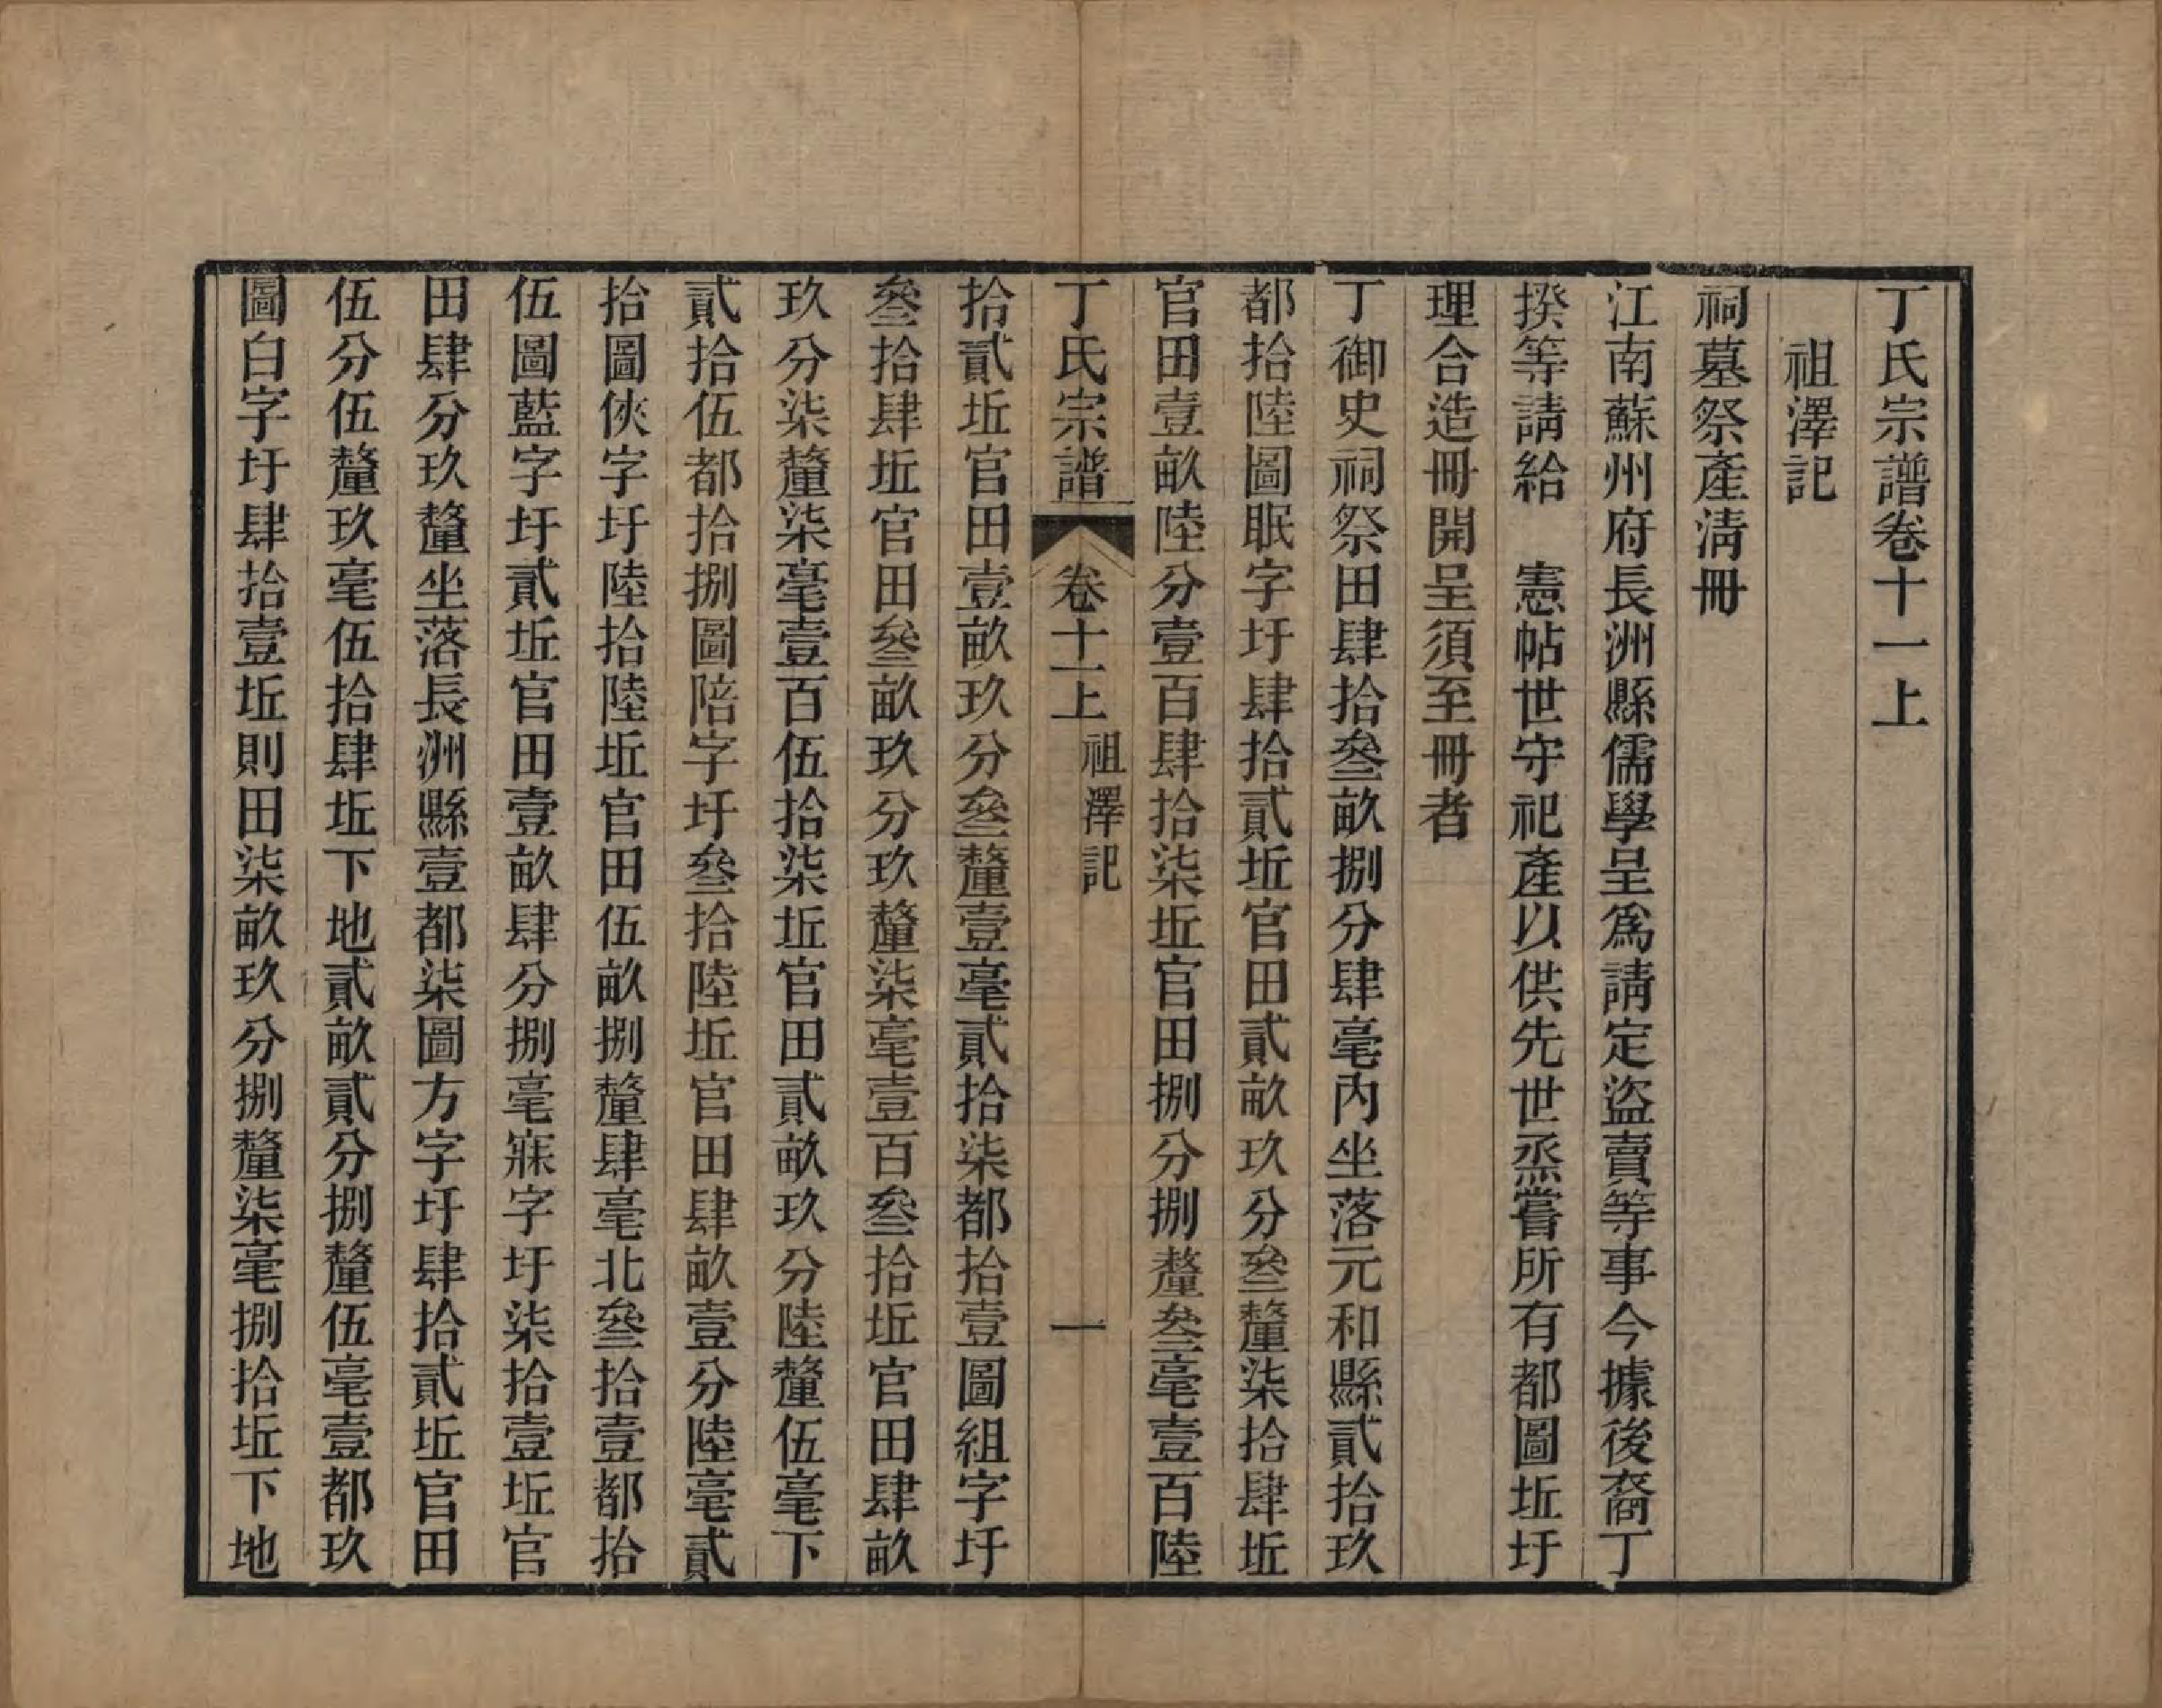 丁氏宗譜卷十一上
祖澤記
祠墓祭產淸冊
江南蘇州府長洲縣儒學呈爲請定盜賣等事今據後裔丁
揆等請給　憲帖世守祀產以供先世烝嘗所有都圖坵圩
理合造冊開呈須至冊者
丁御史祠祭田肆拾叄畝捌分肆毫內坐落元和縣貳拾玖
都拾陸圖眠字圩肆拾貳坵官田貳畝玖分叄釐柒拾肆坵
官田壹畝陸分壹百肆拾柒坵官田捌分捌釐叄毫壹百陸
丁氏宗譜　卷十一上　祖澤記　一
拾貳坵官田壹畝玖分叄釐壹毫貳拾柒都拾壹圖組字圩
叄拾肆坵官田叄畝玖分玖釐柒毫壹百叄拾坵官田肆畝
玖分柒釐柒毫壹百伍拾柒坵官田貳畝玖分陸釐伍毫下
貳拾伍都拾捌圖陪字圩叄拾陸坵官田肆畝壹分陸毫貳
拾圖俠字圩陸拾陸坵官田伍畝捌釐肆毫北叄拾壹都拾
伍圖藍字圩貳坵官田壹畝肆分捌毫寐字圩柒拾壹坵官
田肆分玖釐坐落長洲縣壹都柒圖方字圩肆拾貳坵官田
伍分伍釐玖毫伍拾肆坵下地貳畝貳分捌釐伍毫壹都玖
圖白字圩肆拾壹坵則田柒畝玖分捌釐柒毫捌拾坵下地